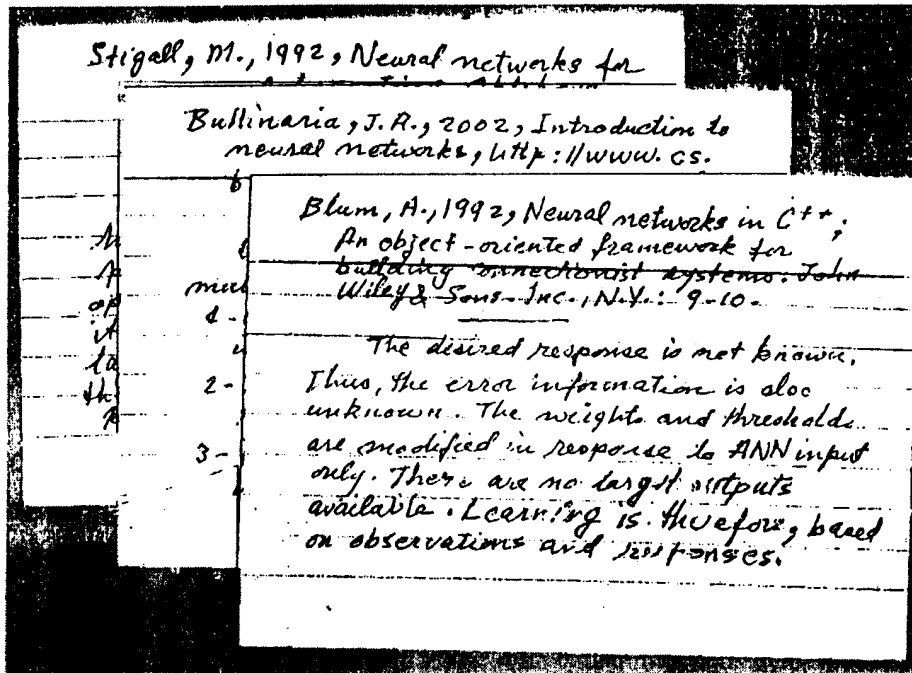 Stigall, M., 1992, Neural networks for
Bullinaria, J.A., 2002, Introduction to
neural networks, http://www.cs.
Blum, A., 1992, Neural networks in C++;
An object-oriented framework for
building connectionist systems. John
Wiley & Sons Inc., N.Y.: 9-10.
The desired response is not known.
Thus, the error information is also
unknown. The weights and thresholds
are modified in response to ANN input
only. There are no target outputs
available. Learning is therefore, based
on observations and responses.
1-
2-
3-